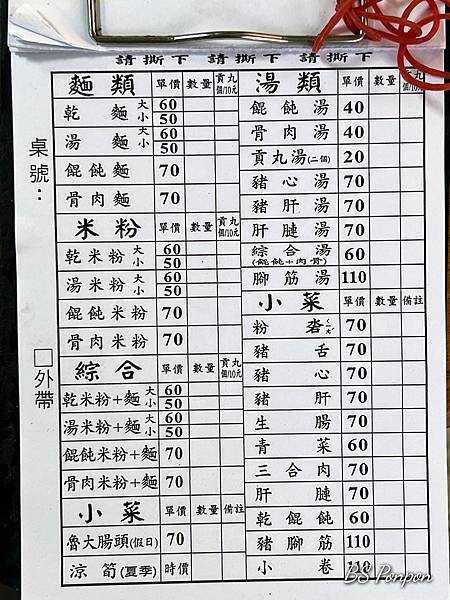 請撕下 請撕下 請撕下
桌號：
□外帶
麵類 單價 數量 貢丸個/10元
乾麵 大 60
小 50
湯麵 大 60
小 50
餛飩麵 70
骨肉麵 70
米粉 單價 數量 貢丸個/10元
乾米粉 大 60
小 50
湯米粉 大 60
小 50
餛飩米粉 70
骨肉米粉 70
綜合 單價 數量 貢丸個/10元
乾米粉+麵 大 60
小 50
湯米粉+麵 大 60
小 50
餛飩米粉+麵 70
骨肉米粉+麵 70
小菜 單價 數量 備註
魯大腸頭(假日) 70
涼筍(夏季) 時價
湯類 單價 數量 貢丸個/10元
餛飩湯 40
骨肉湯 40
貢丸湯(二個) 20
豬心湯 70
豬肝湯 70
肝腱湯 70
綜合湯 60
(餛飩+肉骨)
腳筋湯 110
小菜 單價 數量 備註
粉 70
豬舌 70
豬心 70
豬肝 70
生腸 70
青菜 60
三合肉 70
肝腱 70
乾餛飩 60
豬腳筋 110
小卷 110
BS Ponpon